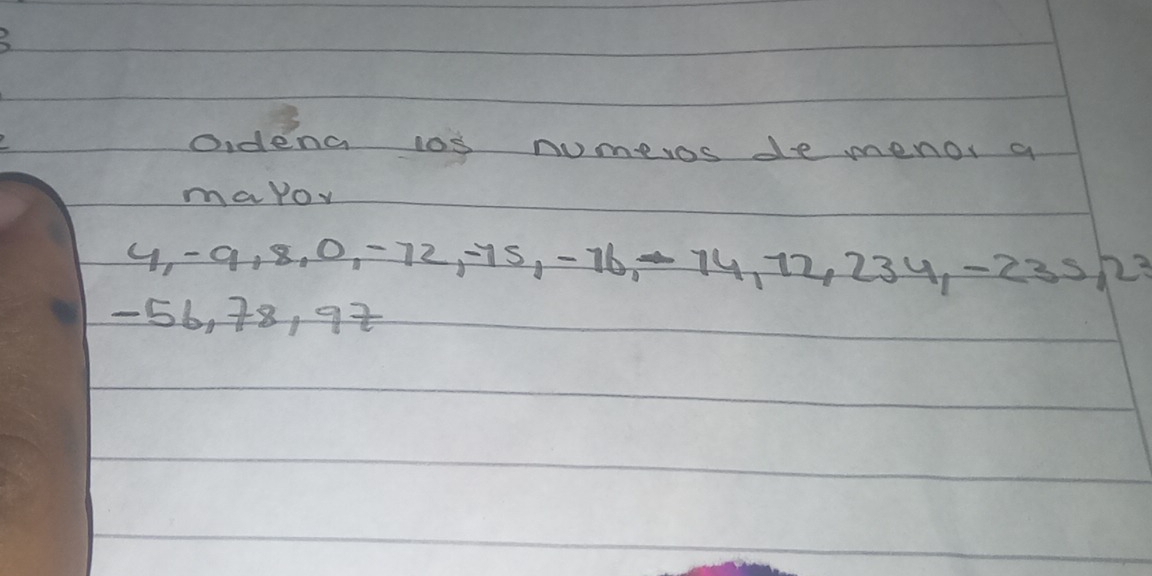 Ordena los numeros de menor a
mayor
4, -9, 8, 0, -12, -15, -16, -14, 12, 234, -235, 23
-56, 78, 97